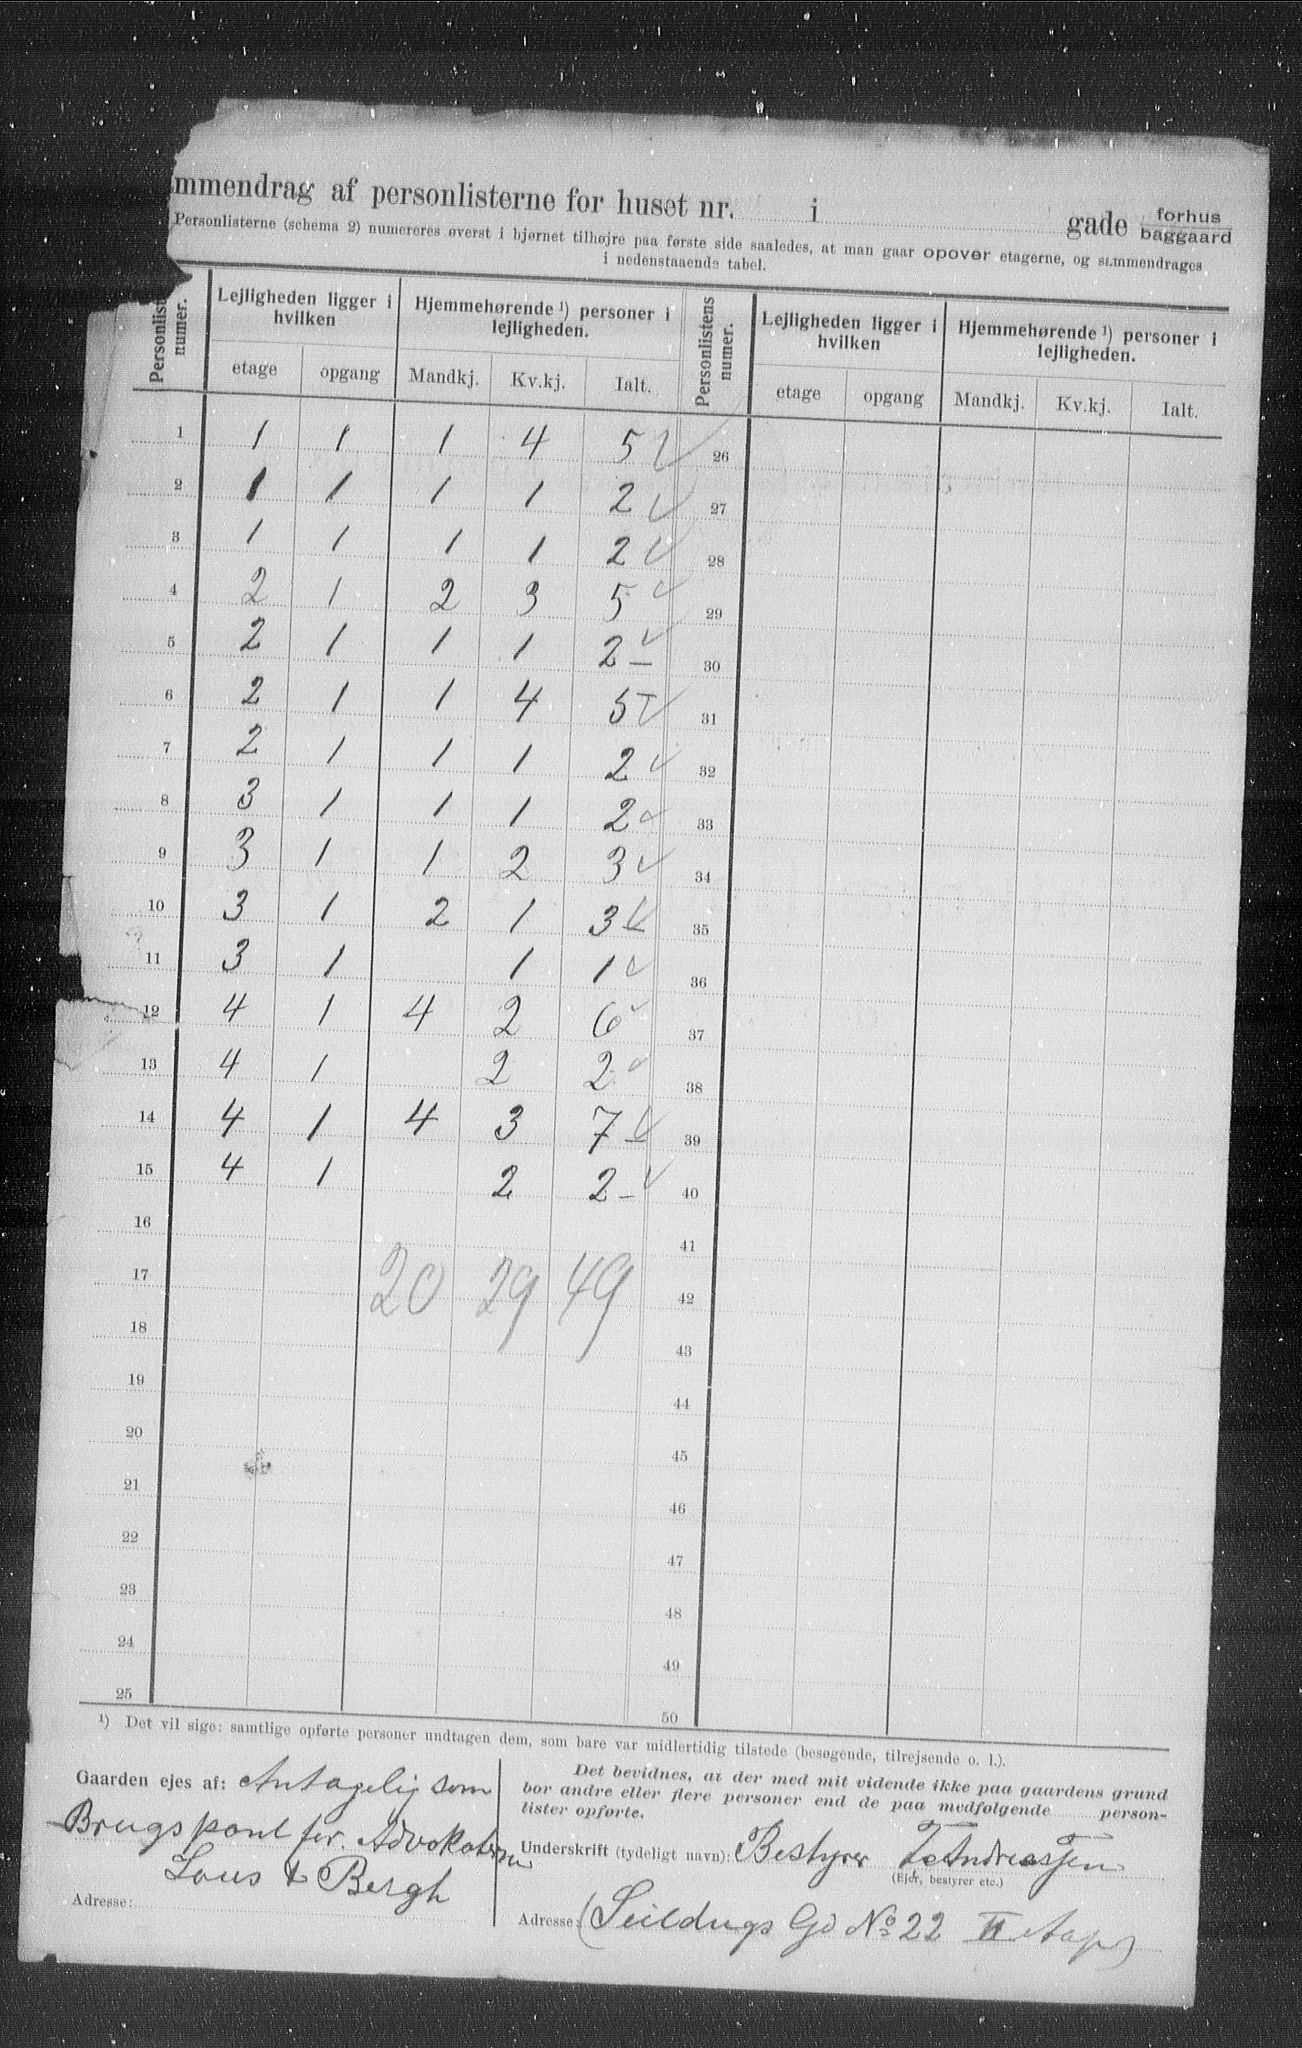 mmendrag af personlisterne for huset nr. i gade forhus
baggaard
Personlisterne (schema 2) numereres øverst i hjørnet tilhøjre paa første side saaledes, at man gaar opover etagerne, og sammendrages
i nedenstaaende tabel.
Personlist numer. Lejligheden ligger i hvilken Hjemmehørende ¹) personer i lejligheden. Personlistens numer. Lejligheden ligger i hvilken Hjemmehørende ¹) personer i lejligheden.
etage opgang Mandkj. Kv.kj. Ialt. etage opgang Mandkj. Kv.kj. Ialt.
1 1 1 1 4 5 26
2 1 1 1 1 2 27
3 1 1 1 1 2 28
4 2 1 2 3 5 29
5 2 1 1 1 2 30
6 2 1 1 4 5 31
7 2 1 1 1 2 32
8 3 1 1 1 2 33
9 3 1 1 2 3 34
10 3 1 2 1 3 35
11 3 1 1 1 36
12 4 1 4 2 6 37
13 4 1 2 2 38
14 4 1 4 3 7 39
15 4 1 2 2 40
16 41
17 20 29 49 42
18 43
19 44
20 45
21 46
22 47
23 48
24 49
25 50
¹) Det vil sige: samtlige opførte personer undtagen dem, som bare var midlertidig tilstede (besøgende, tilrejsende o. l.).
Gaarden ejes af: Antagelig som
Brugspant for Advokaterne
Lous & Bergh
Adresse:
Det bevidnes, at der med mit vidende ikke paa gaardens grund
bor andre eller flere personer end de paa medfølgende person-
lister opførte.
Underskrift (tydeligt navn): Bestyrer Andreassen
(Ejer, bestyrer etc.)
Adresse: (Seildugs Gd No 22 II etage)